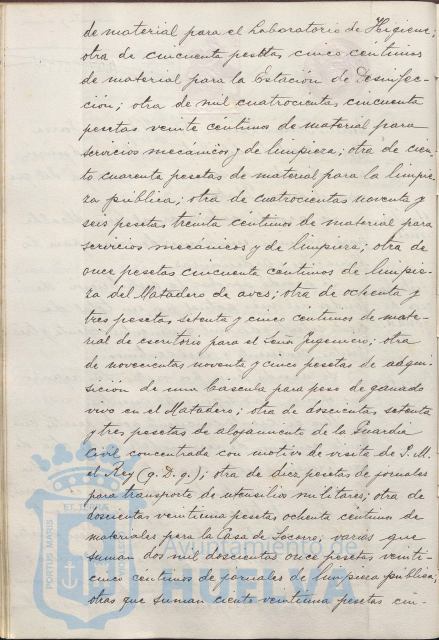 de material para el Laboratorio de Higiene;
otra de cincuenta pesetas cinco céntimos
de material para la Estación de Desinfec-
ción; otra de mil cuatrocientas cincuenta
pesetas veinte céntimos de material para
servicios mecánicos y de limpieza; otra de cien-
to cuarenta pesetas de material para la limpie-
za pública; otra de cuatrocientas noventa y
seis pesetas treinta céntimos de material para
servicios mecánicos y de limpieza; otra de
once pesetas cincuenta céntimos de limpie-
za del Matadero de aves; otra de ochenta y
tres pesetas setenta y cinco céntimos de mate-
rial de escritorio para el Señor Ingeniero; otra
de novecientas noventa y cinco pesetas de adqui-
sición de una báscula para peso de ganado
vivo en el Matadero; otra de doscientas setenta
y tres pesetas de alojamiento de la Guardia
Civil concentrada con motivo de visita de S. M.
el Rey (q. D. g.); otra de diez pesetas de jornales
para transporte de utensilios militares; otra de
doscientas veintiuna pesetas ochenta céntimos de
materiales para la Casa de Socorro; varias que
suman dos mil doscientas once pesetas veinti-
cinco céntimos de jornales de limpieza pública;
otras que suman ciento veintiuna pesetas cin-
PORTUS MARIS
ET TERRÆ
Ayuntamiento de
HUELVA